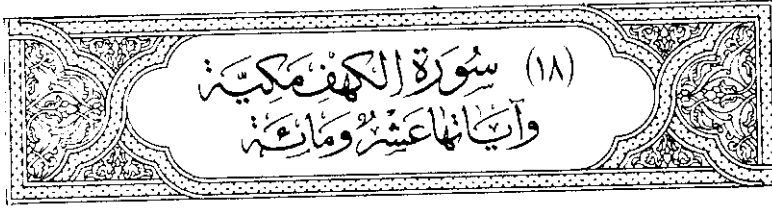 (١٨) سُورَة الكهف مَكيَّة
وآيَاتها عَشْرٌ وَمَائَة